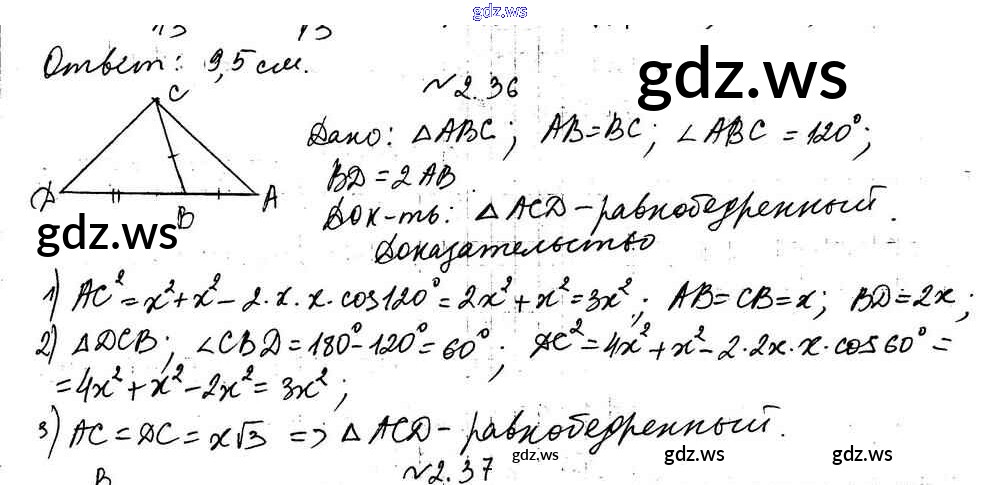 gdz.ws
Ответ: 9,5 см.
gdz.ws
№2.36
C
Дано: △ABC; AB=BC; ∠ABC=120°;
BD=2AB
D B A
Док-ть: △ACD - равнобедренный.
gdz.ws
Доказательство
1) AC²=x²+x²-2·x·x·cos120°=2x²+x²=3x²; AB=CB=x; BD=2x;
2) △DCB; ∠CBD=180°-120°=60°; DC²=4x²+x²-2·2x·x·cos60°=
=4x²+x²-2x²=3x²;
3) AC=DC=x√3 => △ACD - равнобедренный.
gdz.ws gdz.ws gdz.ws
№2.37
B